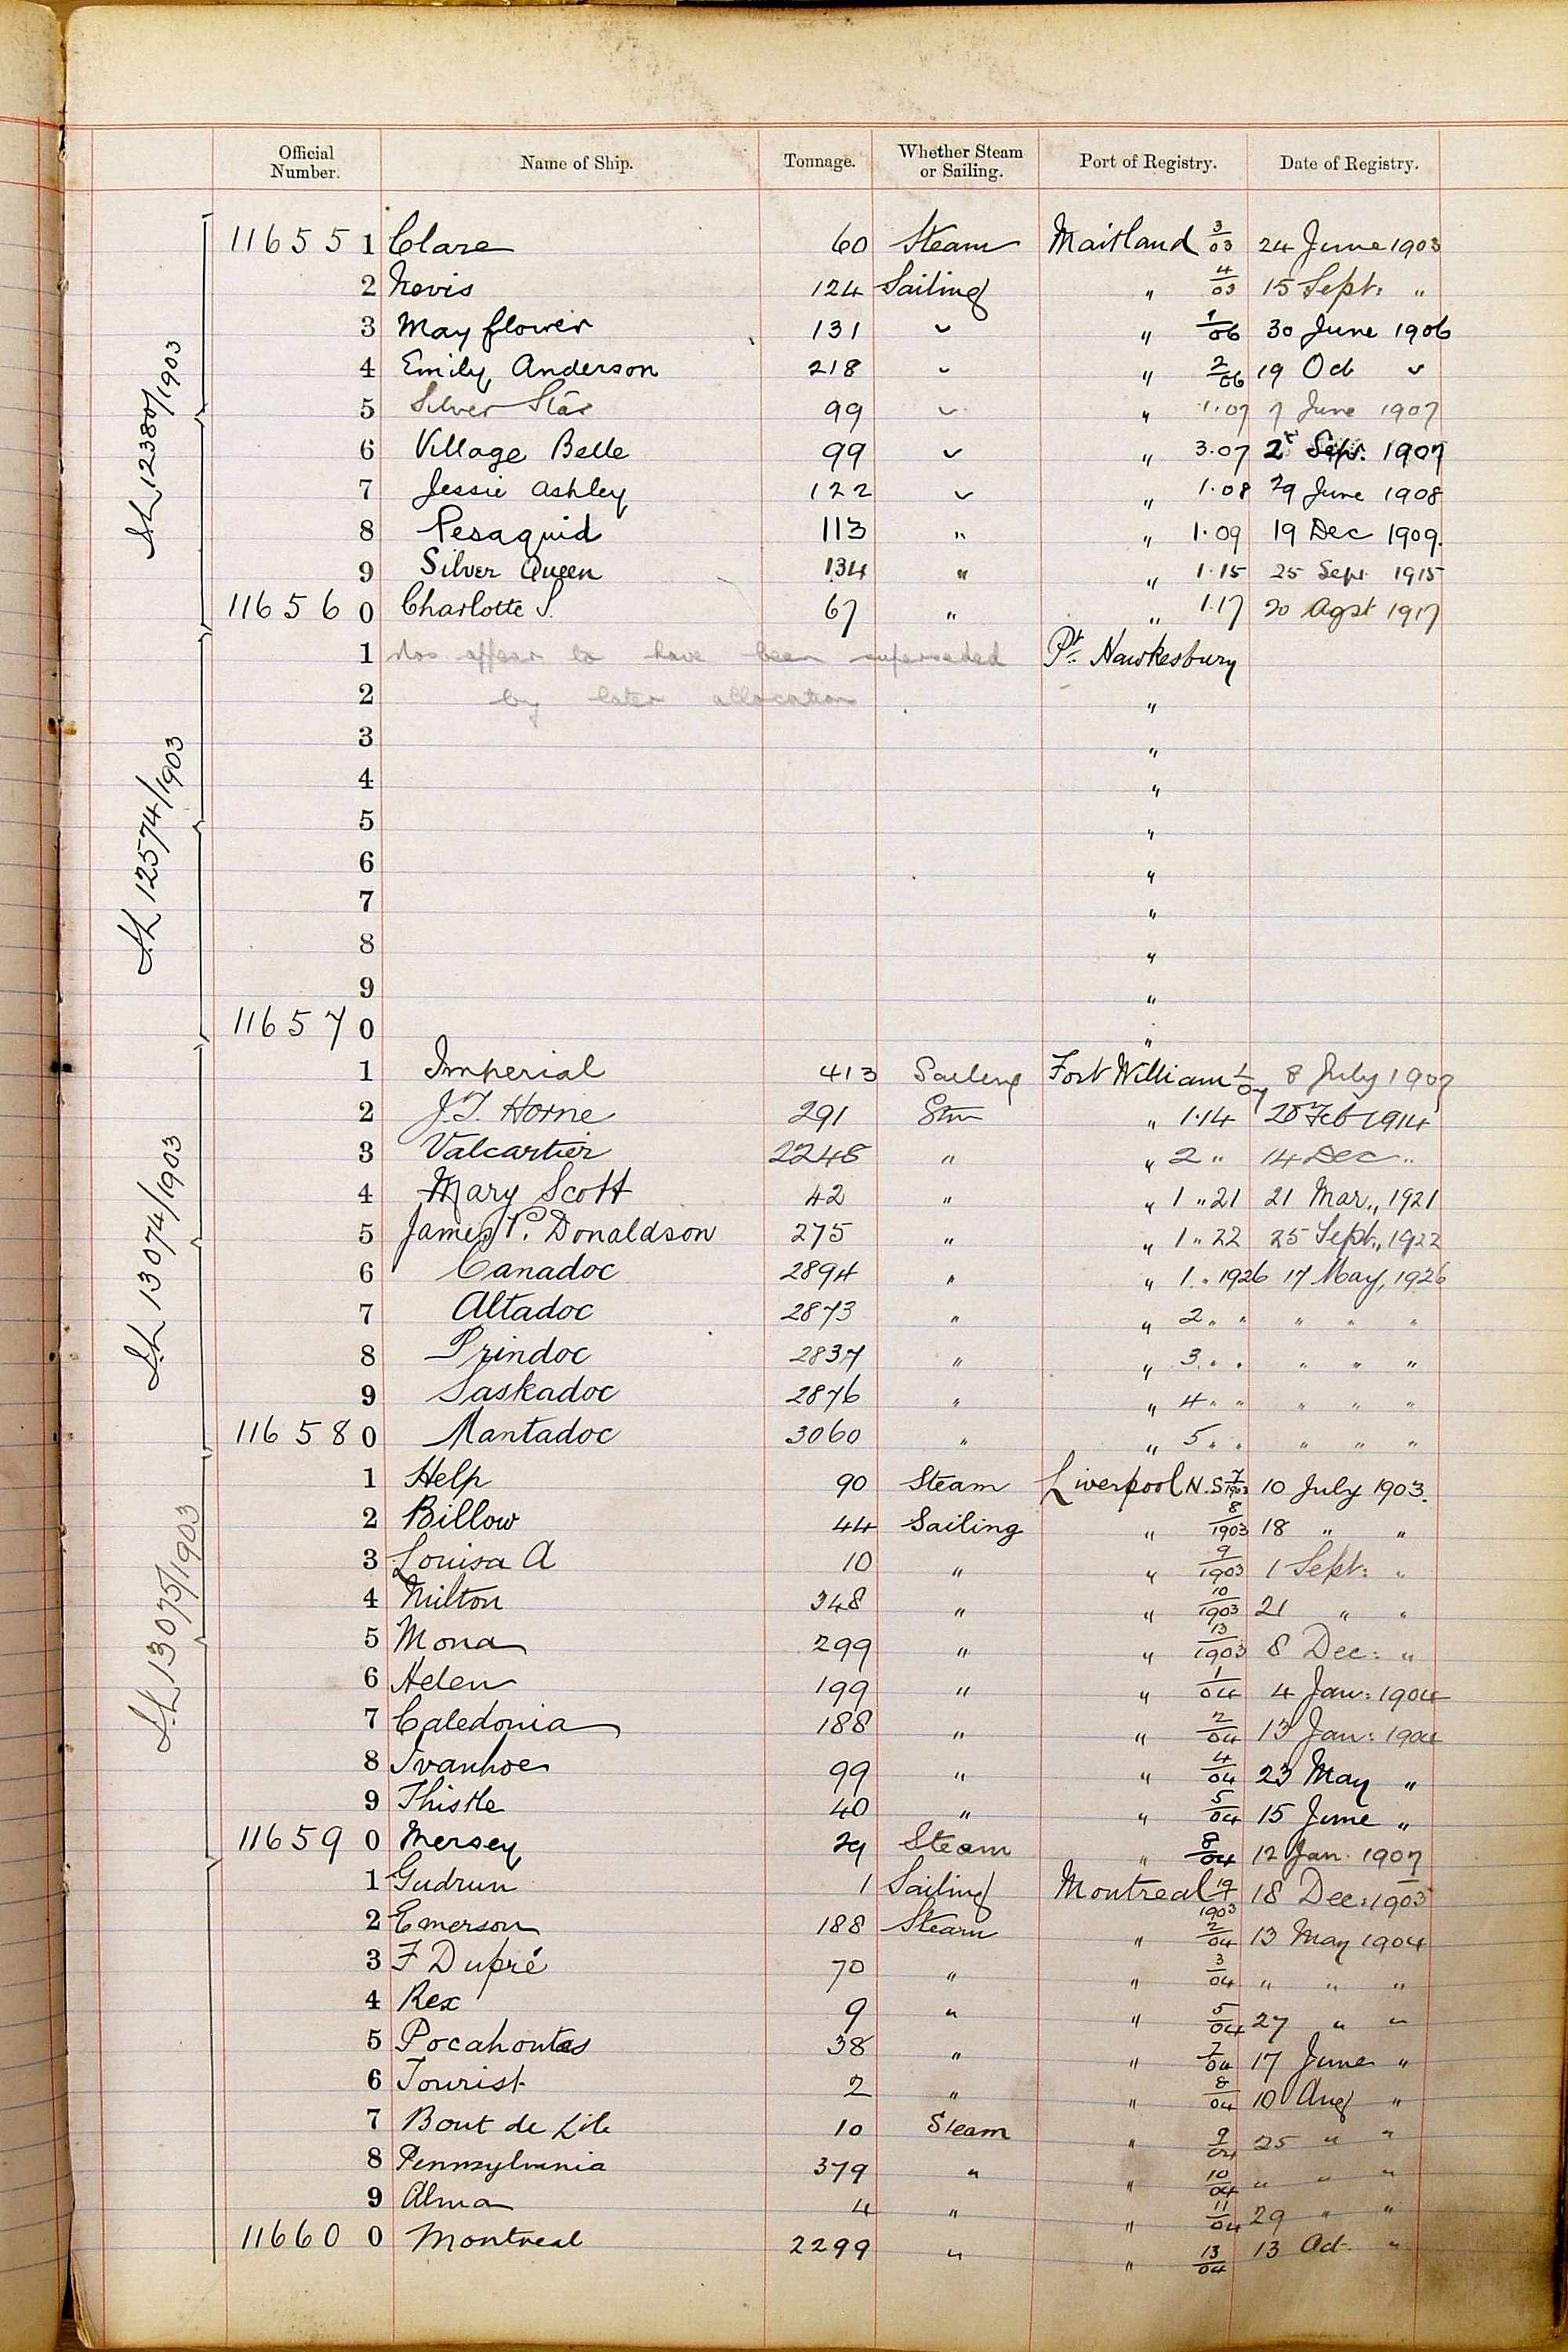 Official Number. Name of Ship. Tonnage. Whether Steam or Sailing. Port of Registry. Date of Registry.
S.L 12380/1903
116551 Clare 60 Steam Maitland 3/03 24 June 1903
2 Nevis 124 Sailing " 4/03 15 Sept: "
3 May flower 131 " " 1/06 30 June 1906
4 Emily Anderson 218 " " 2/06 19 Oct "
5 Silver Star 99 " " 1.07 7 June 1907
6 Village Belle 99 " " 3.07 2 Sep. 1907
7 Jessie Ashley 122 " " 1.08 29 June 1908
8 Pesaquid 113 " " 1.09 19 Dec 1909.
9 Silver Queen 134 " " 1.15 25 Sep 1915
116560 Charlotte S. 67 " " 1.17 20 Agst 1917
S.L 12574/1903
1 Nos appear to have been superseded Pt. Hawkesbury
2 by later allocation "
3 "
4 "
5 "
6 "
7 "
8 "
9 "
116570 "
S.L 13074/1903
1 Imperial 413 Sailing Fort William 1/07 8 July 1907
2 J.T. Horne 291 Stm " 1.14 28 Feb 1914
3 Valcartier 2248 " " 2 " 14 Dec "
4 Mary Scott 42 " " 1 " 21 21 Mar., 1921
5 James P. Donaldson 275 " " 1 " 22 25 Sept., 1922
6 Canadoc 2894 " " 1 . 1926 17 May, 1926
7 Altadoc 2873 " " 2 " " " " "
8 Prindoc 2837 " " 3 " " " " "
9 Saskadoc 2876 " " 4 " " " " "
116580 Mantadoc 3060 " " 5 " " " " "
S.L 13075/1903
1 Help 90 Steam Liverpool N.S 7/1903 10 July 1903.
2 Billow 44 Sailing " 8/1903 18 " "
3 Louisa A 10 " " 9/1903 1 Sept: "
4 Milton 348 " " 10/1903 21 " "
5 Mona 299 " " 13/1903 8 Dec: "
6 Helen 199 " " 1/04 4 Jan: 1904
7 Caledonia 188 " " 2/04 13 Jan: 1904
8 Ivanhoe 99 " " 4/04 23 May "
9 Thistle 40 " " 5/04 15 June "
116590 Mersey 29 Steam " 8/04 12 Jan. 1907
1 Gudrun 1 Sailing Montreal 19/1903 18 Dec: 1903
2 Emerson 188 Steam " 2/04 13 May 1904
3 F Dupré 70 " " 3/04 " " "
4 Rex 9 " " 5/04 27 " "
5 Pocahontas 38 " " 7/04 17 June "
6 Tourist 2 " " 8/04 10 Aug "
7 Bout de L'ile 10 Steam " 9/04 25 " "
8 Pennsylvania 379 " " 10/04 " " "
9 Alma 4 " " 11/04 29 " "
116600 Montreal 2299 " " 13/04 13 Oct. "